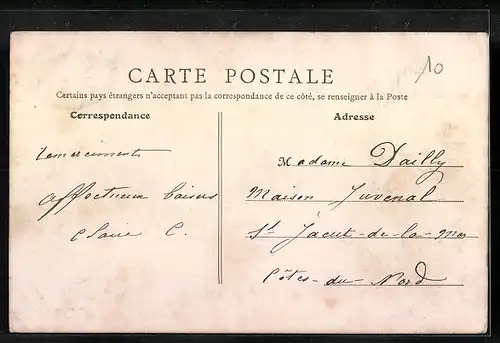 10
CARTE POSTALE
Certains pays étrangers n'acceptant pas la correspondance de ce côté, se renseigner à la Poste
Correspondance
Remerciments
affectueux baisers
Claire C.
Adresse
Madame Dailly
Maison Juvenal
St Jacut-de-la-Mer
Côtes-du-Nord